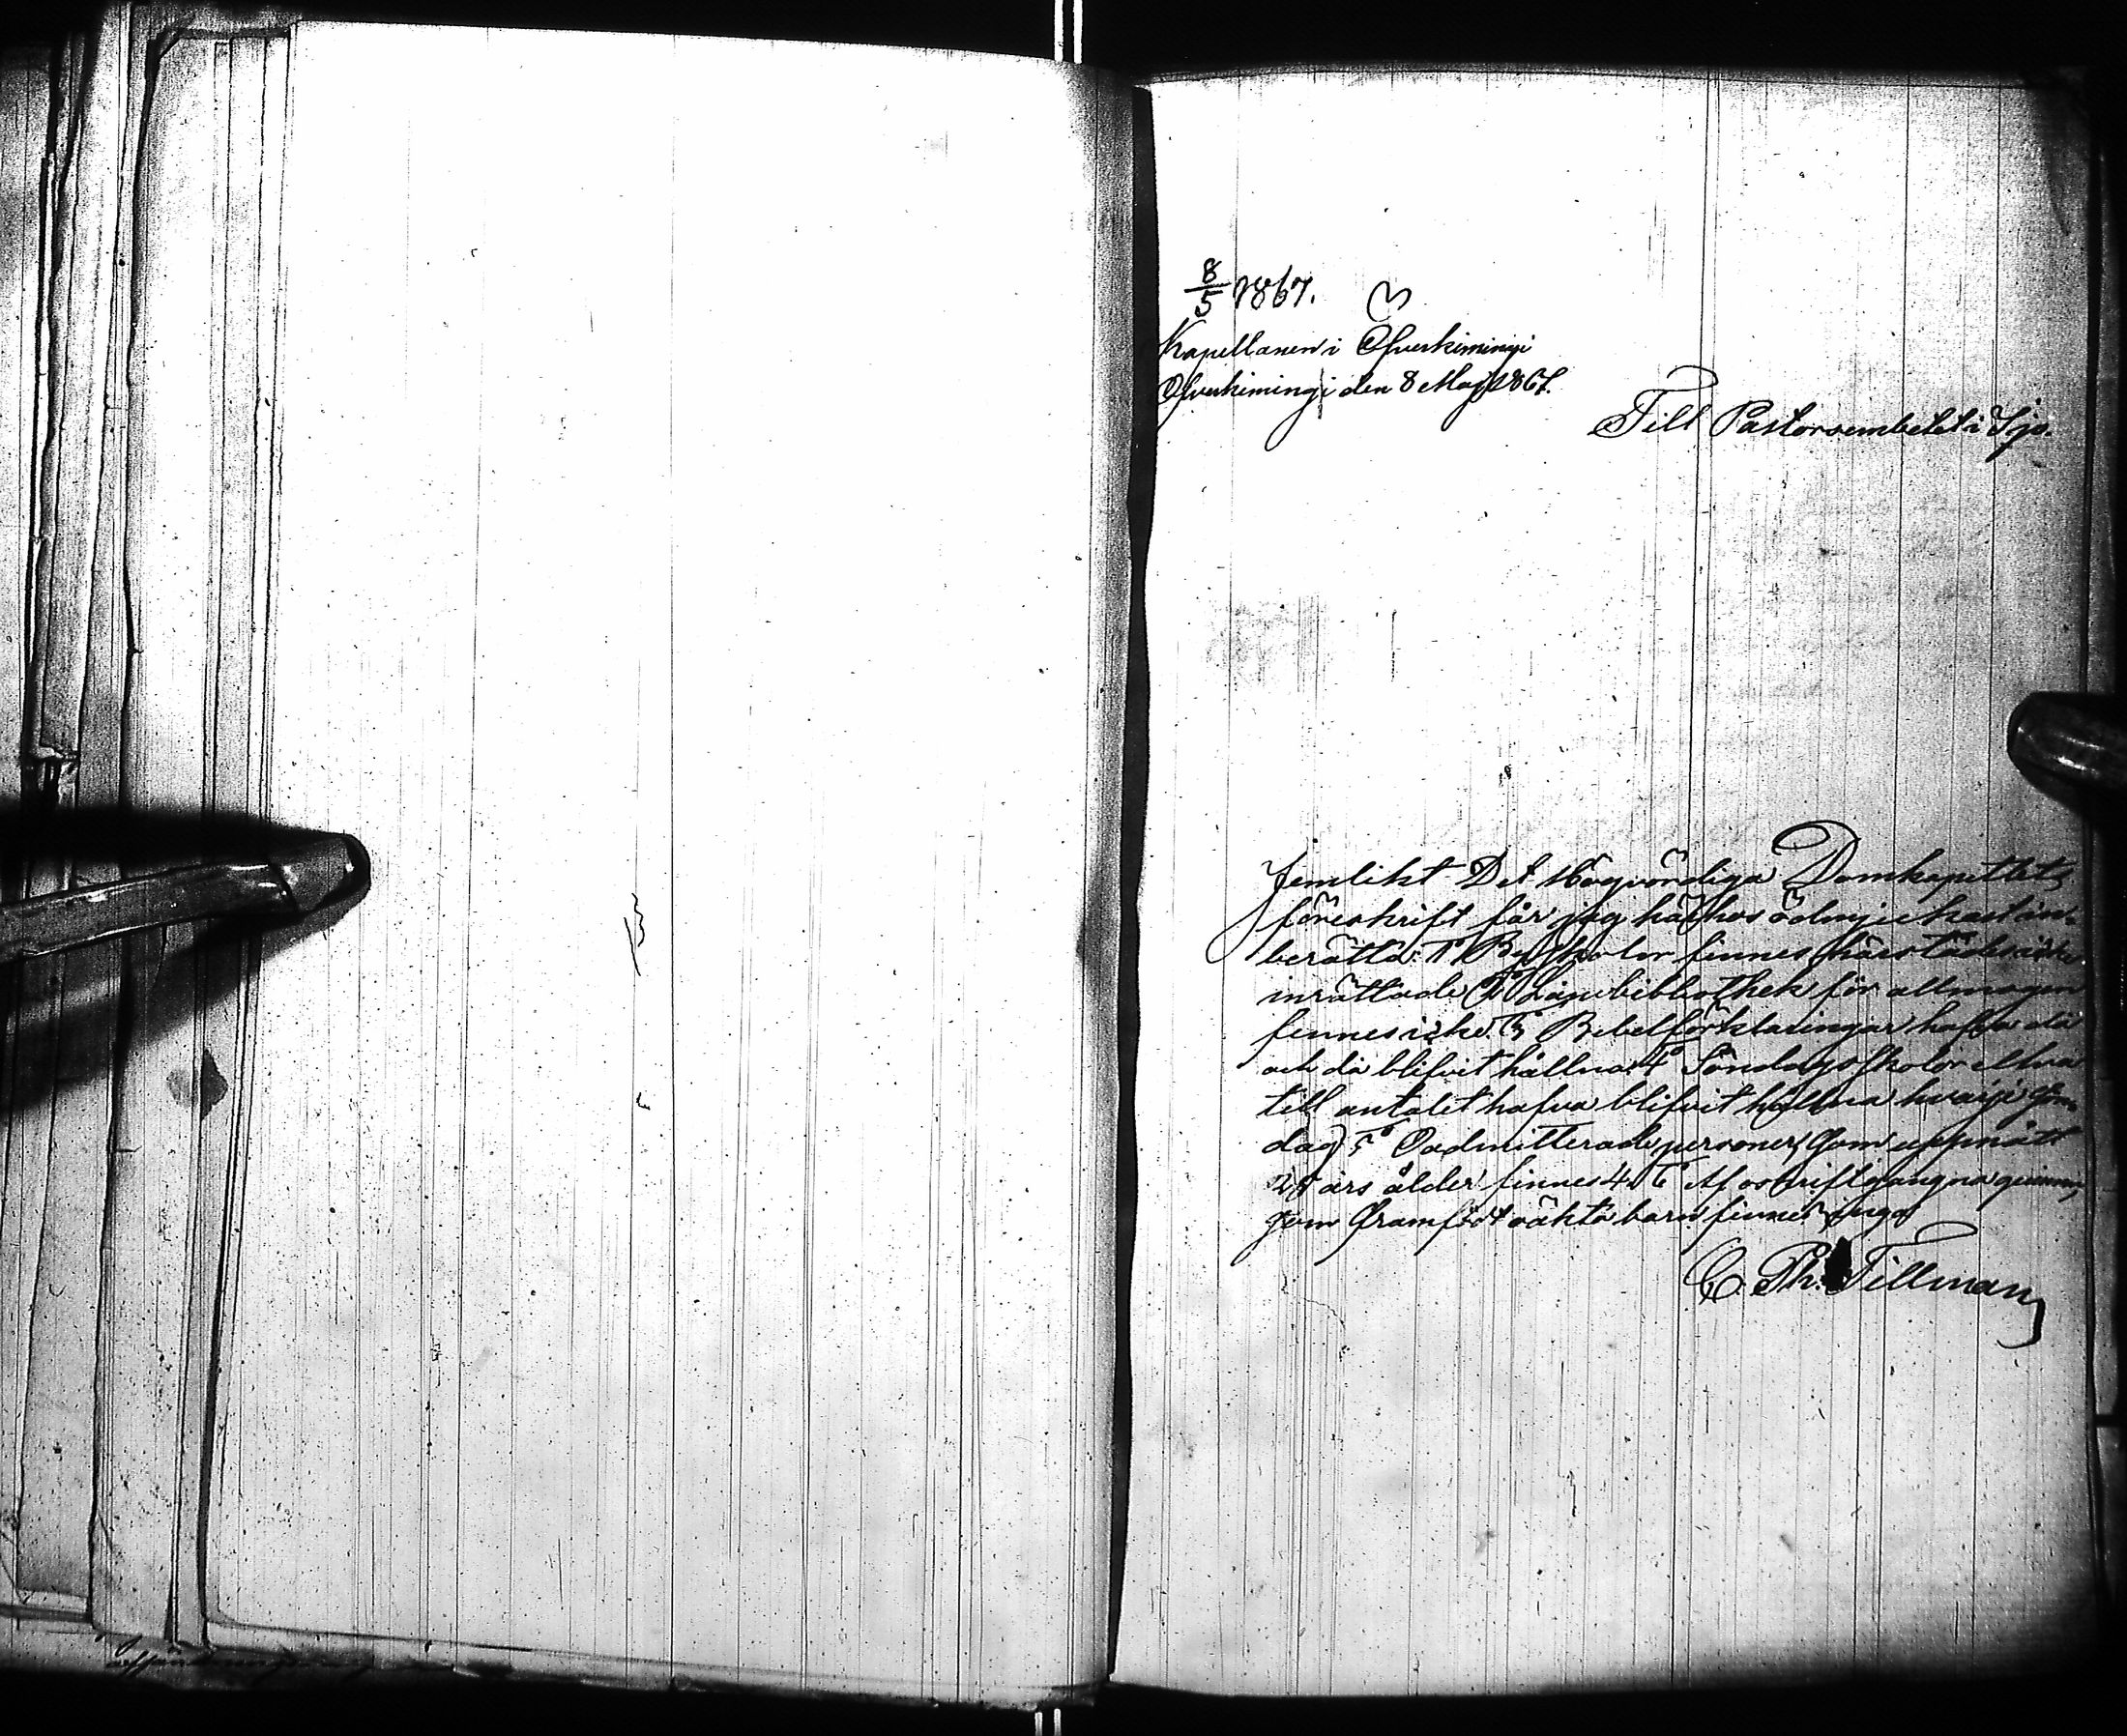 8/5 1867.
Kapellanen i Ofverkimingi
Ofverkimingi den 8 Maj 1867.
Till Pastorsembetet i Ijo.
Jemlikt Det Högvördiga Domkapitlets
föreskrift får jag härhos ödmjukast in-
berätta: 1° Byskolor finnes härstädes icke
inrättade 2° Lånebibliothek för allmogen
finnes icke. 3° Bibelförklaringar hafva då
och då blifvit hållna. 4° Söndagsskolor elfva
till antalet hafva blifvit hållna hvarje Sön-
dag. 5° Oadmitterade personer, som uppnått
års ålder finnes 4. 6° Af oskriftgångna qvinnor,
som framfödt oäkta barn finnes inga
C. Th. Tillman